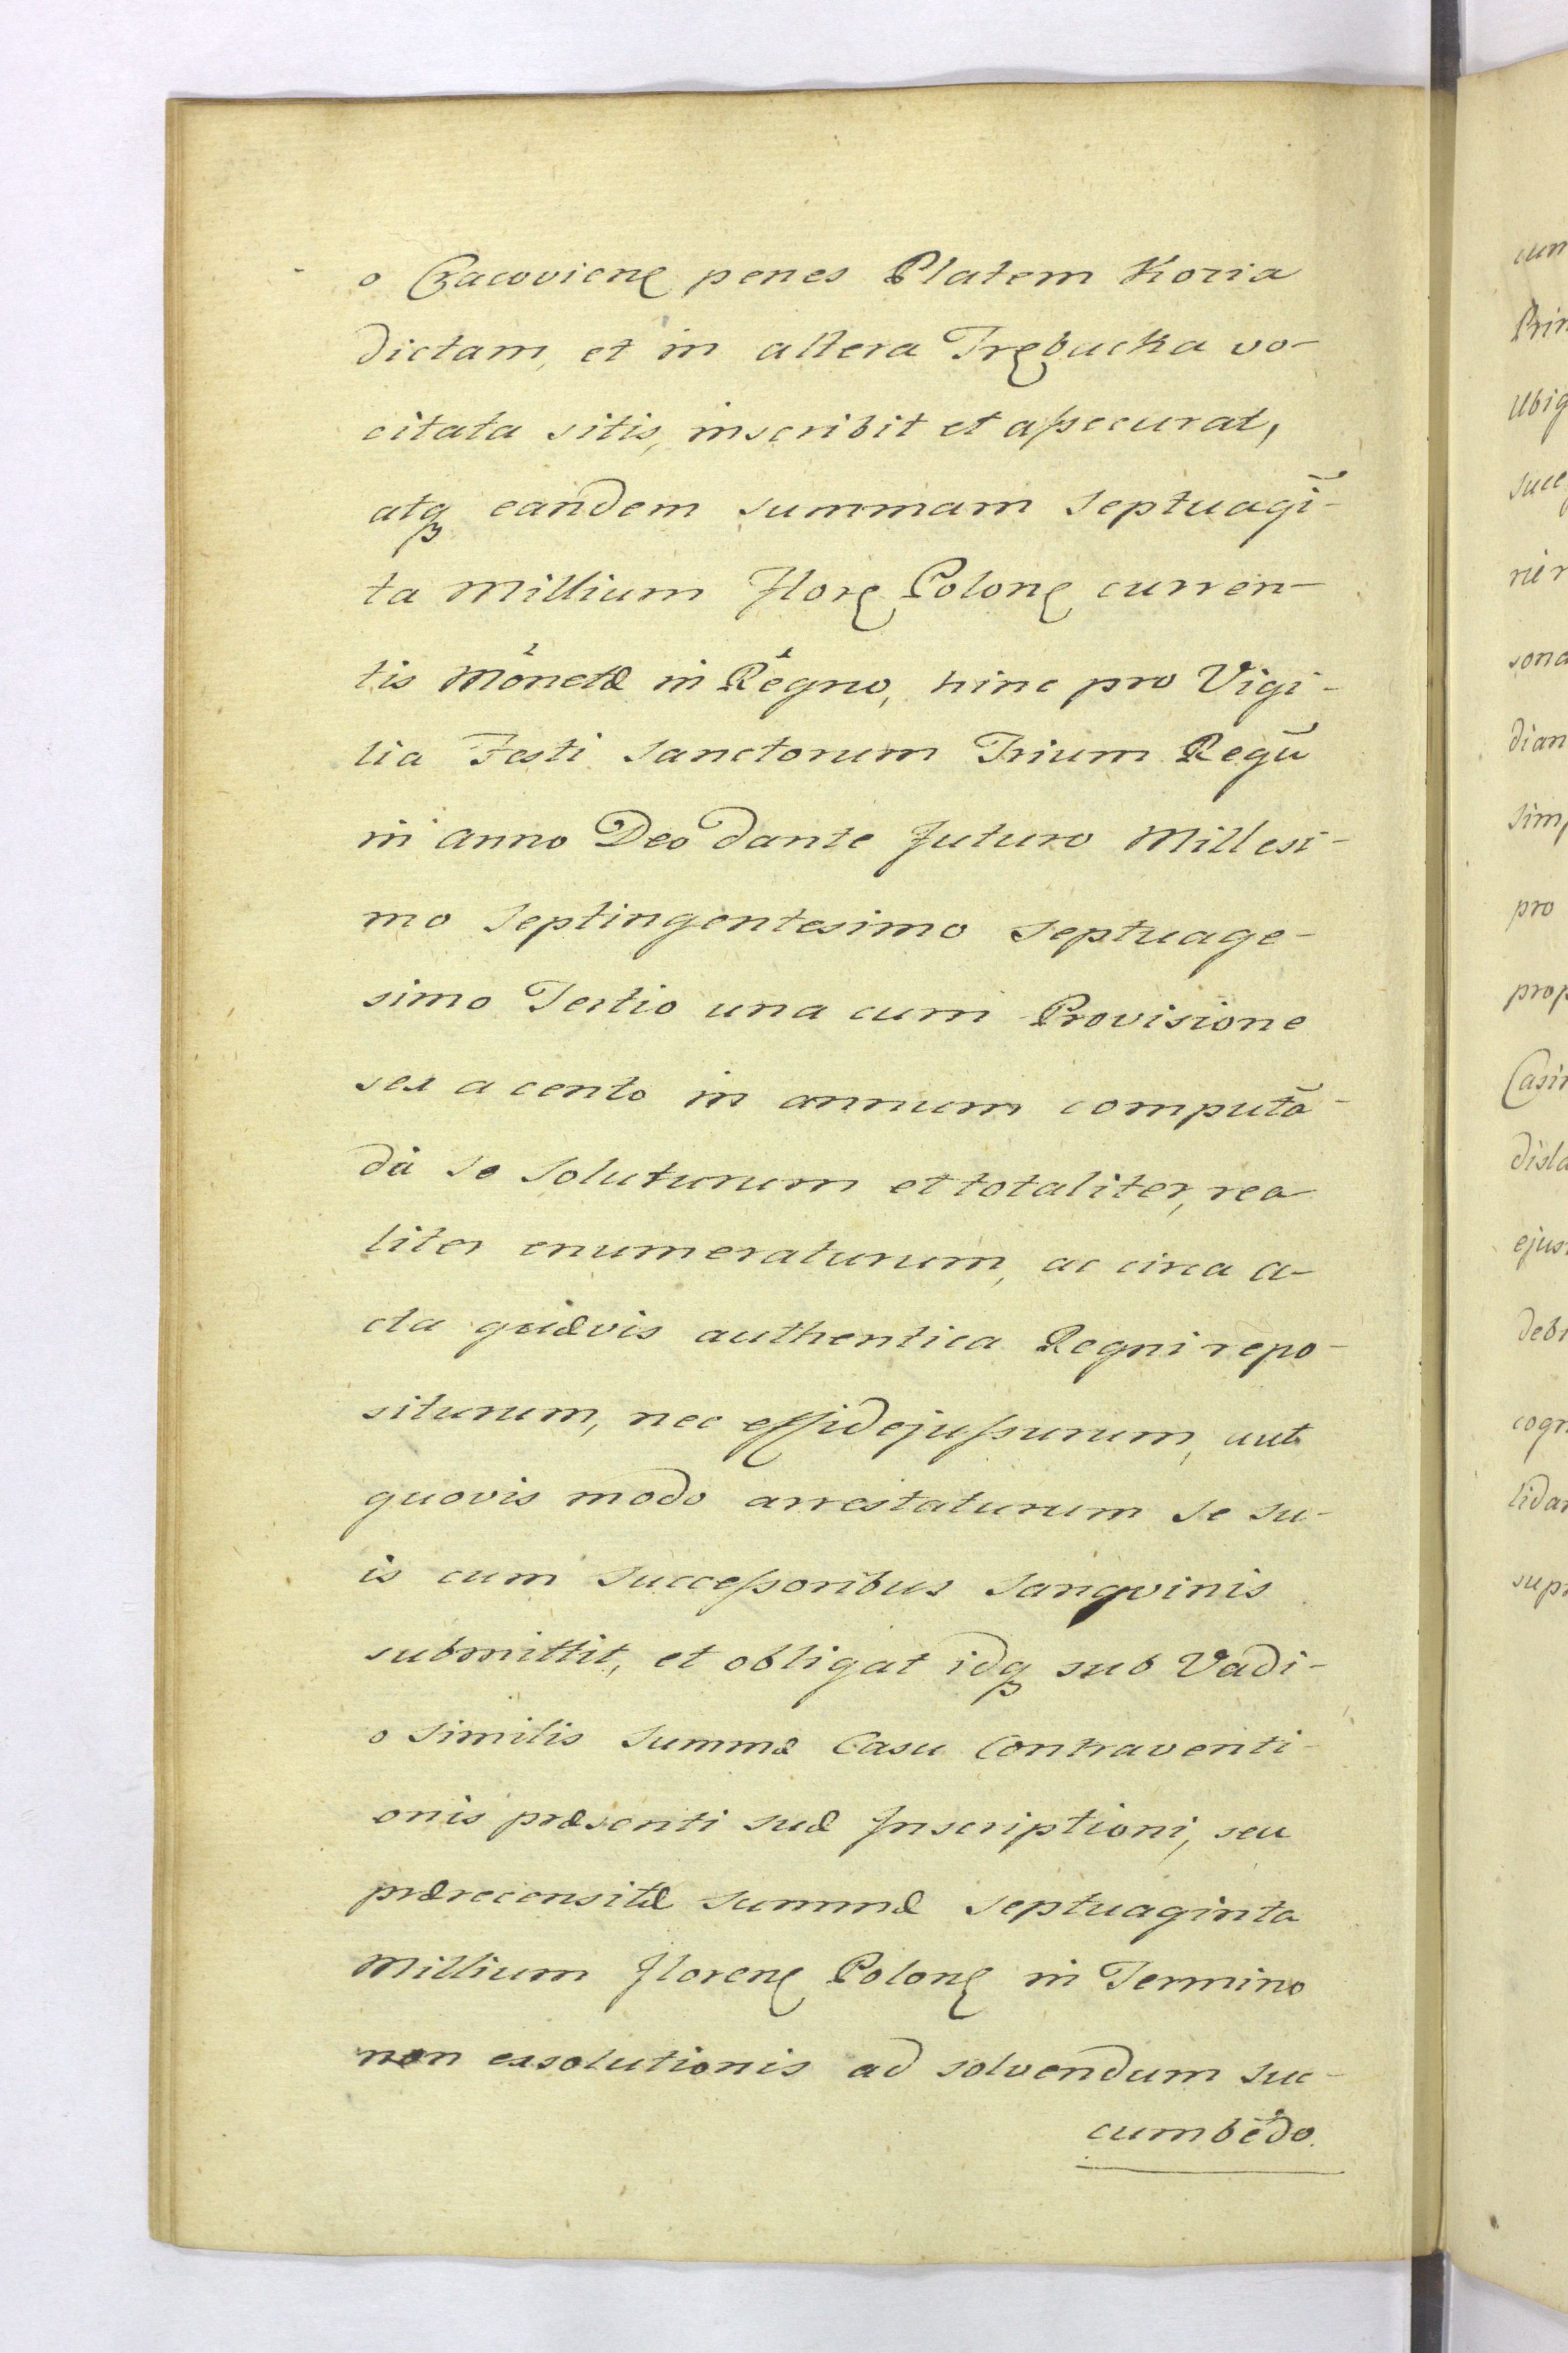 o Cracovienę penes Platem Kozia
dictam, et in altera Trębacka vo-
citata sitis, inscribit et assecurat,
atqȝ eandem summam septuagī-
ta Millium Florę Polonę curren-
tis Monetæ in Regno, hinc pro Vigi-
lia Festi Sanctorum Trium Regū
in anno Deo dante futuro Millesi-
mo Septingentesimo Septuage-
simo Tertio una cum Provisione
sex a cento in annum computā-
da se soluturum et totaliter, rea-
liter enumeraturum, ac circa a-
cta quævis authentica Regni repo-
siturum, nec effidejussurum, aut
quovis modo arrestaturum se su-
is cum successoribus sangvinis
submittit, et obligat idqȝ sub Vadi-
o similis summæ casu contraventi-
onis præsenti suæ Inscriptioni, seu
prærecensitæ summæ septuaginta
Millium florenę Polonę in Termino
non exsolutionis ad solvendum suc-
cumbēdo.
cum
Prin
Ubiq
suce
rier
sona
dian
simp
pro
prop
Casim
disla
ejus
debi
cogn
lidar
supr